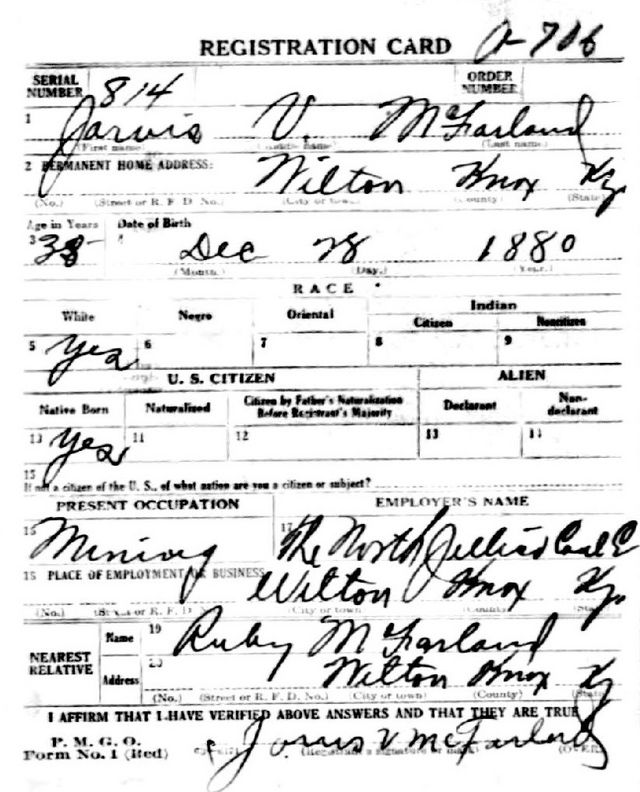 REGISTRATION CARD A-706
SERIAL NUMBER 814 ORDER NUMBER
1 Jarvis V. McFarland
(First name) (Middle name) (Last name)
2 PERMANENT HOME ADDRESS: Wilton Knox Ky.
(No.) (Street or R. F. D. No.) (City or town) (County) (State)
Age in Years Date of Birth
3 38 4 Dec 28 1880
(Month.) (Day.) (Year.)
RACE
White Negro Oriental Indian
Citizen Noncitizen
5 Yes 6 7 8 9
U. S. CITIZEN ALIEN
Native Born Naturalized Citizen by Father's Naturalization Before Registrant's Majority Declarant Non-declarant
10 Yes 11 12 13 14
15
If not a citizen of the U. S., of what nation are you a citizen or subject?
PRESENT OCCUPATION EMPLOYER'S NAME
16 Mining 17 The North Jellico Coal C
18 PLACE OF EMPLOYMENT OR BUSINESS Wilton Knox Ky.
(No.) (Street or R. F. D. (City or town) (County) (State)
NEAREST RELATIVE Name 19 Ruby McFarland
Address 20 Wilton Knox Ky
(No.) (Street or R. F. D. No.) (City or town) (County) (State)
I AFFIRM THAT I HAVE VERIFIED ABOVE ANSWERS AND THAT THEY ARE TRUE
P. M. G. O.
Form No. 1 (Red) Jarvis V McFarland
(Registrant's signature or mark) (OVER)